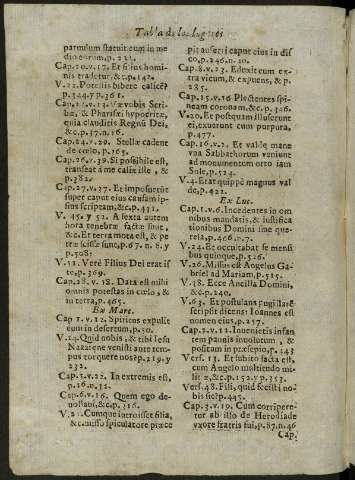 Tabla de los lugares
paruulum statuit eum in me
dio eorum, p. 221.
Cap. 20. v. 17. Et filius homi
nis tradetur, &c. p. 142.
V. 22. Potestis bibere calicē?
p. 344. y p. 361.
Cap. 23. v. 13. Væ vobis Scri
bæ, & Pharisæi hypocritæ,
quia clauditis Regnū Dei,
&c. p. 37. n. 16.
Cap. 24. v. 29. Stellæ cadent
de cœlo, p. 365.
Cap. 26. v. 39. Si possibile est,
transeat á me calix iste, &
p. 382.
Cap. 27. v. 37. Et imposuerūt
super caput eius causam ip-
sius scriptam, &c. p. 431.
V. 45. y 52. A sexta autem
hora tenebræ factæ sunt,
&c. Et terra mota est, & pe
træ scissæ sunt, p. 67. n. 8. y
p. 508:
V. 54. Verè Filius Dei erat is
te, p. 369.
Cap. 28. v. 18. Data est mihi
omnis potestas in cœlo, &
in terra, p. 465.
Ex Marc.
Cap. 1. v. 12. Spiritus expulit
eum in desertum, p. 30.
V. 24. Quid nobis, & tibi Iesu
Nazarene venisti ante tem-
pus torquere nos? p. 219. y
232.
Cap. 5. v. 22. In extremis est,
p. 16. n. 32.
Cap. 6. v. 16. Quem ego de-
collaui, &c. p. 316.
V. 22. Cumque introisset filia,
&c. misso spiculatore præce
pit auferri caput eius in dis
co, p. 246. n. 30.
Cap. 8. v. 23. Eduxit eum ex
tra vicum, & expuens, & p.
285.
Cap. 15. v. 16. Plectentes spi-
neam coronam, &c. p. 326.
V. 20. Et postquam illuserunt
ei, exuerunt eum purpura,
p. 477.
Cap. 16. v. 2. Et valdè mane
vna Sabbathorum veniunt
ad monumentum orto iam
Sole, p. 524.
V. 4. Erat quippè magnus val
dè, p. 422.
Ex Luc.
Cap. 1. v. 6. Incedentes in om
nibus mandatis, & iustifica
tionibus Domini sine que-
rela, p. 466. n. 7.
V. 24. Et occultabat se mensi
bus quinque, p. 526.
V. 26. Missus est Angelus Ga-
briel ad Mariam, p. 525.
V. 38. Ecce Ancilla Domini,
&c. p. 240.
V. 63. Et postulans pugillarē
scripsit dicens: Ioannes est
nomen eius, p. 257.
Cap. 2. v. 12. Inuenietis infan
tem pannis inuolutum, &
positum in præsepio, p. 343
Vers. 13. Et subito facta est,
cum Angelo multitudo mi-
litiæ, &c. p. 152. y p. 353.
Vers. 48. Fili, quid fecisti no-
bis sic? p. 445.
Cap. 3. v. 19. Cum corripere-
tur ab illo de Herodiade
vxore fratris sui, p. 87. n. 46
Cap.